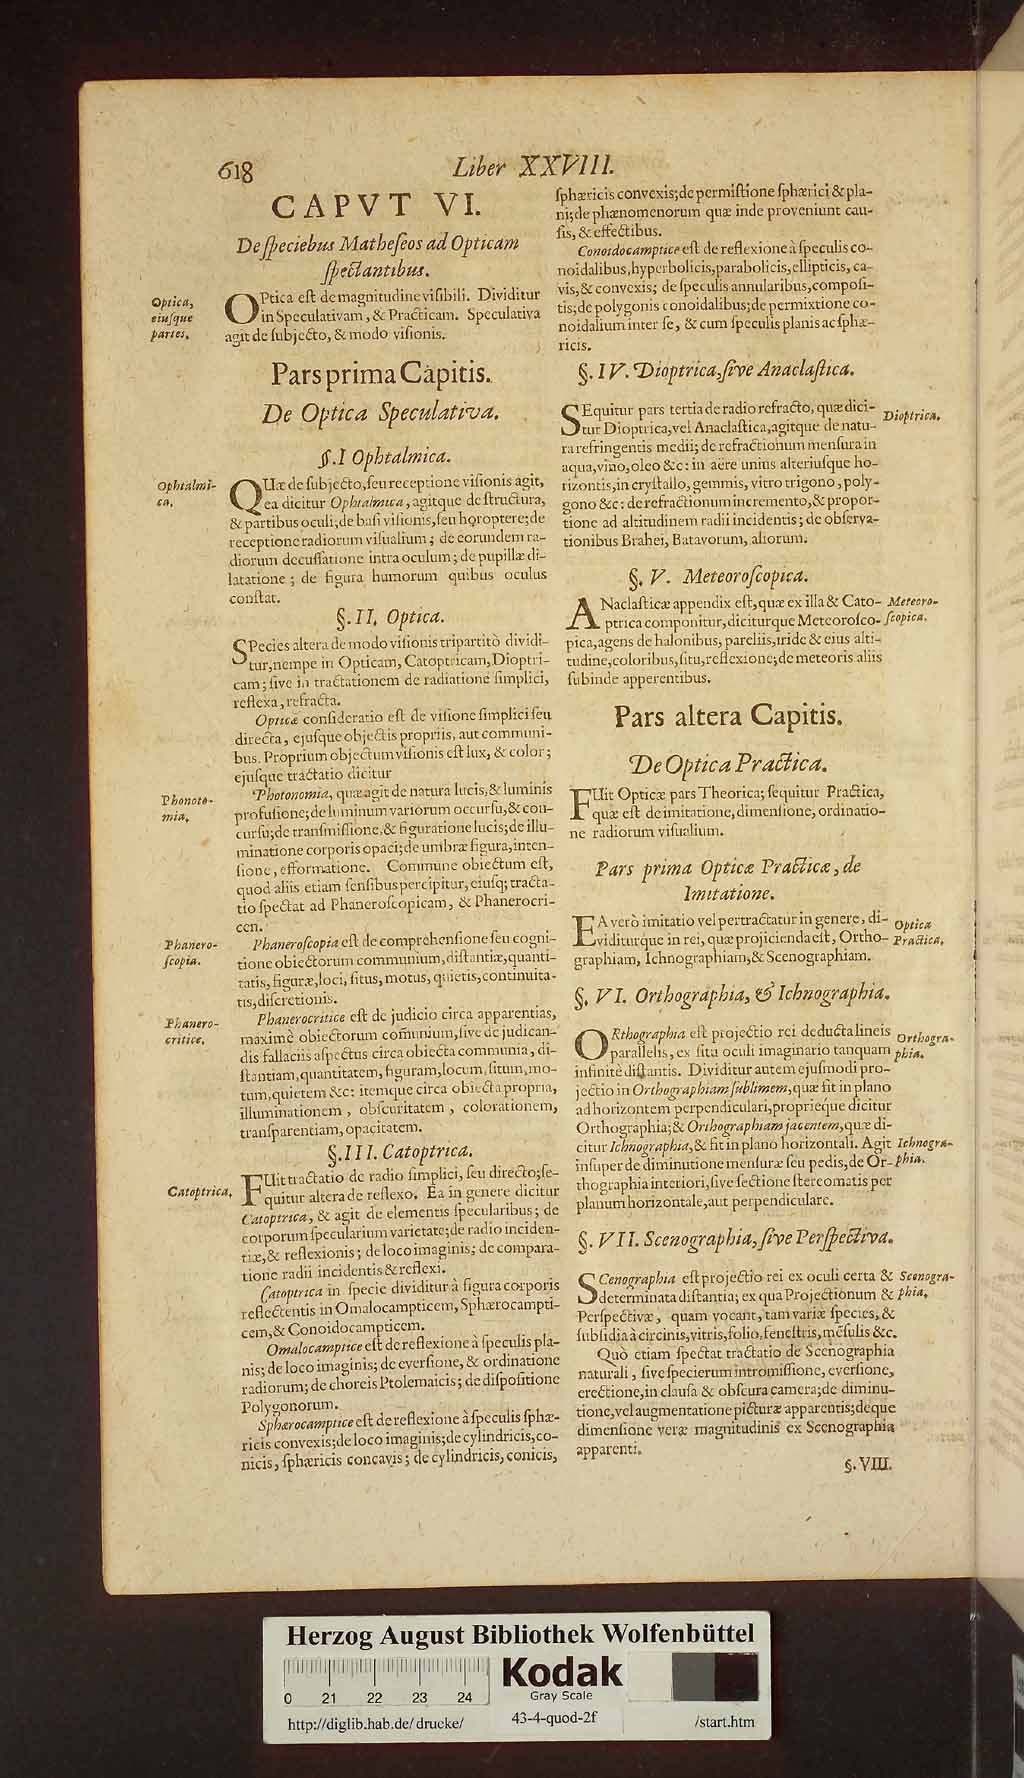 618
Liber XXVIII.
CAPVT VI.
De ſpeciebus Matheſeos ad Opticam
ſpectantibus.
Optica,
eiuſque
partes.
OPtica eſt de magnitudine viſibili. Dividitur
in Speculativam, & Practicam. Speculativa
agit de ſubjecto, & modo viſionis.
Pars prima Capitis.
De Optica Speculativa.
§. I Ophtalmica.
Ophtalmi-
ca.
QUæ de ſubjecto, ſeu receptione viſionis agit,
ea dicitur Ophtalmica, agitque de ſtructura,
& partibus oculi; de baſi viſionis, ſeu horoptere; de
receptione radiorum viſualium; de eorundem ra-
diorum decuſſatione intra oculum; de pupillæ di-
latatione; de figura humorum quibus oculus
conſtat.
§. II. Optica.
SPecies altera de modo viſionis tripartitò dividi-
tur, nempe in Opticam, Catoptricam, Dioptri-
cam; ſive in tractationem de radiatione ſimplici,
reflexa, refracta.
Opticæ conſideratio eſt de viſione ſimplici ſeu
directa, ejuſque objectis propriis, aut communi-
bus. Proprium objectum viſionis eſt lux, & color;
ejuſque tractatio dicitur
Phonoto-
mia.
Photonomia, quæ agit de natura lucis, & luminis
profuſione; de luminum variorum occurſu, & con-
curſu; de tranſmiſſione, & figuratione lucis; de illu-
minatione corporis opaci; de umbræ figura, inten-
ſione, efformatione. Commune obiectum eſt,
quod aliis etiam ſenſibus percipitur, eiuſq; tracta-
tio ſpectat ad Phaneroſcopicam, & Phanerocri-
cen.
Phanero-
ſcopia.
Phaneroſcopia eſt de comprehenſione ſeu cogni-
tione obiectorum communium, diſtantiæ, quanti-
tatis, figuræ, loci, ſitus, motus, quietis, continuita-
tis, diſcretionis.
Phanero-
critice.
Phanerocritice eſt de judicio circa apparentias,
maximè obiectorum com̃unium, ſive de judican-
dis fallaciis aſpectus circa obiecta communia, di-
ſtantiam, quantitatem, figuram, locum, ſitum, mo-
tum, quietem &c: itemque circa obiecta propria,
illuminationem, obſcuritatem, colorationem,
tranſparentiam, opacitatem.
§. III. Catoptrica.
Catoptrica.
FUit tractatio de radio ſimplici, ſeu directo; ſe-
quitur altera de reflexo. Ea in genere dicitur
Catoptrica, & agit de elementis ſpecularibus; de
corporum ſpecularium varietate; de radio inciden-
tiæ, & reflexionis; de loco imaginis; de compara-
tione radii incidentis & reflexi.
Catoptrica in ſpecie dividitur à figura corporis
reflectentis in Omalocampticem, Sphærocampti-
cem, & Conoidocampticem.
Omalocamptice eſt de reflexione à ſpeculis pla-
nis; de loco imaginis; de everſione, & ordinatione
radiorum; de choreis Ptolemaicis; de diſpoſitione
Polygonorum.
Sphærocamptice eſt de reflexione à ſpeculis ſphæ-
ricis convexis; de loco imaginis; de cylindricis, co-
nicis, ſphæricis concavis; de cylindricis, conicis,
ſphæricis convexis; de permiſtione ſphærici & pla-
ni; de phænomenorum quæ inde proveniunt cau-
ſis, & effectibus.
Conoidocamptice eſt de reflexione à ſpeculis co-
noidalibus, hyperbolicis, parabolicis, ellipticis, ca-
vis, & convexis; de ſpeculis annularibus, compoſi-
tis; de polygonis conoidalibus; de permixtione co-
noidalium inter ſe, & cum ſpeculis planis ac ſphæ-
ricis.
§. IV. Dioptrica, ſive Anaclaſtica.
SEquitur pars tertia de radio refracto, quæ dici-
tur Dioptrica, vel Anaclaſtica, agitque de natu-
ra refringentis medii; de refractionum menſura in
aqua, vino, oleo &c: in aëre unius alteriuſque ho-
rizontis, in cryſtallo, gemmis, vitro trigono, poly-
gono &c: de refractionum incremento, & propor-
tione ad altitudinem radii incidentis; de obſerva-
tionibus Brahei, Batavorum, aliorum.
Dioptrica.
§. V. Meteoroſcopica.
ANaclaſticæ appendix eſt, quæ ex illa & Cato-
ptrica componitur, diciturque Meteoroſco-
pica, agens de halonibus, pareliis, iride & eius alti-
tudine, coloribus, ſitu, reflexione; de meteoris aliis
ſubinde apperentibus.
Meteoro-
ſcopica.
Pars altera Capitis.
De Optica Practica.
FUit Opticæ pars Theorica; ſequitur Practica,
quæ eſt de imitatione, dimenſione, ordinatio-
ne radiorum viſualium.
Pars prima Opticæ Practicæ, de
Imitatione.
EA verò imitatio vel pertractatur in genere, di-
viditurque in rei, quæ projicienda eſt, Ortho-
graphiam, Ichnographiam, & Scenographiam.
Optica
Practica.
§. VI. Orthographia, & Ichnographia.
ORthographia eſt projectio rei deducta lineis
parallelis, ex ſitu oculi imaginario tanquam
infinitè diſtantis. Dividitur autem ejuſmodi pro-
jectio in Orthographiam ſublimem, quæ fit in plano
ad horizontem perpendiculari, proprieque dicitur
Orthographia; & Orthographiam jacentem, quæ di-
citur Ichnographia, & fit in plano horizontali. Agit
inſuper de diminutione menſuræ ſeu pedis, de Or-
thographia interiori, ſive ſectione ſtereomatis per
planum horizontale, aut perpendiculare.
Orthogra-
phia.
Ichnogra-
phia.
§. VII. Scenographia, ſive Perſpectiva.
SCenographia eſt projectio rei ex oculi certa &
determinata diſtantia; ex qua Projectionum &
Perſpectivæ, quam vocant, tam variæ ſpecies, &
ſubſidia à circinis, vitris, folio, feneſtris, mẽſulis &c.
Quò etiam ſpectat tractatio de Scenographia
naturali, ſive ſpecierum intromiſſione, everſione,
erectione, in clauſa & obſcura camera; de diminu-
tione, vel augmentatione picturæ apparentis; deque
dimenſione veræ magnitudinis ex Scenographia
apparenti.
Scenogra-
phia.
§. VIII.
Herzog August Bibliothek Wolfenbüttel
0 21 22 23 24
Kodak
Gray Scale
http://diglib.hab.de/drucke/
43-4-quod-2f
/start.htm